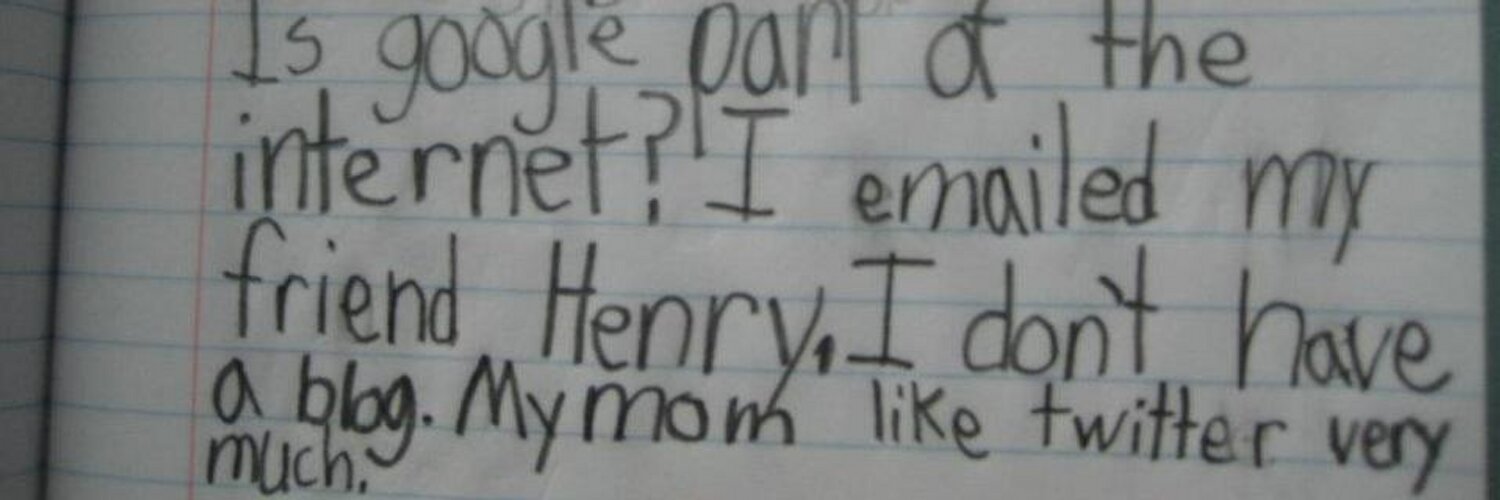 Is google part of the
internet? I emailed my
friend Henry. I don't have
a blog. My mom like twitter very
much.